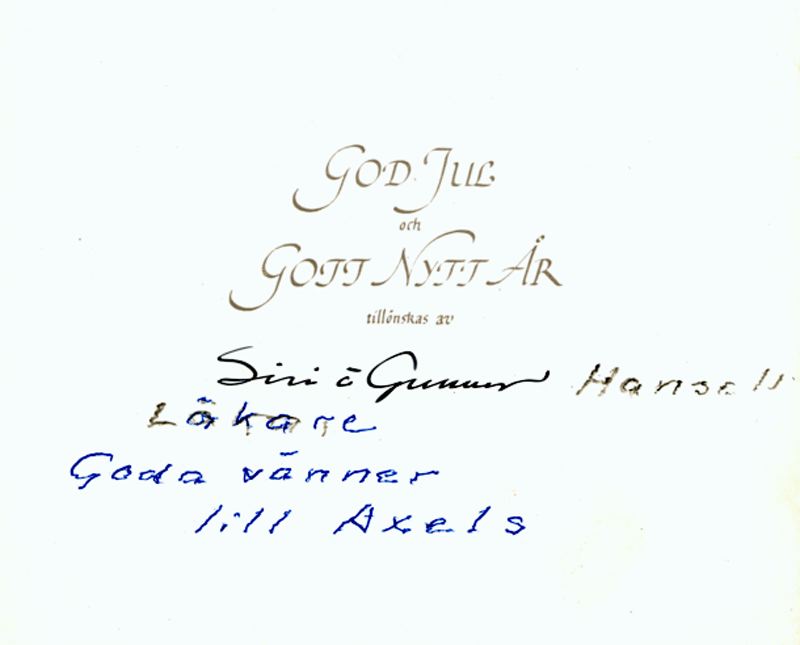 GOD JUL
och
GOTT NYTT ÅR
tillönskas av
Siri o Gunnar Hansell
Läkare
Goda vänner
till Axels